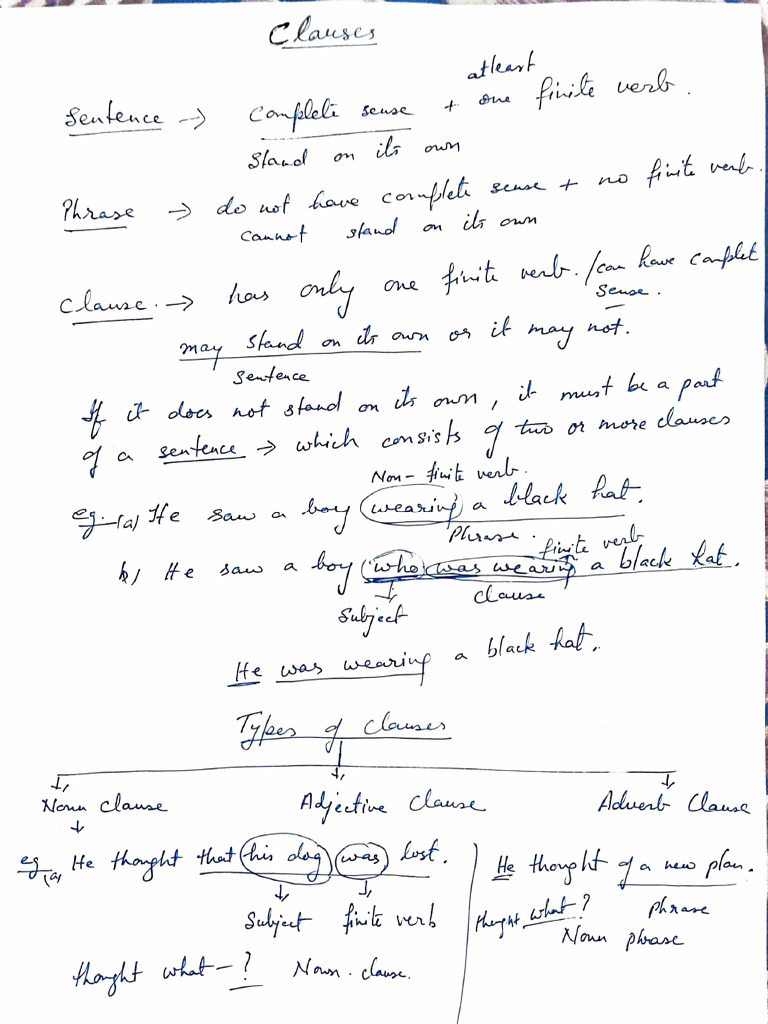 Clauses
Sentence → complete sense + atleast one finite verb.
Stand on its own
Phrase → do not have complete sense + no finite verb.
cannot stand on its own
Clause. → has only one finite verb. / can have complet
sense.
may stand on its own or it may not.
Sentence
If it does not stand on its own, it must be a part
of a sentence → which consists of two or more clauses
Non-finite verb.
eg. (a) He saw a boy wearing a black hat.
Phrase.
finite verb
b) He saw a boy who was wearing a black hat.
Subject
clause
He was wearing a black hat.
Types of clauses
Noun clause
Adjective Clause
Adverb Clause
eg (a) He thought that his dog was lost.
Subject finite verb
thought what - ? Noun. clause.
He thought of a new plan.
thought what? phrase
Noun phrase